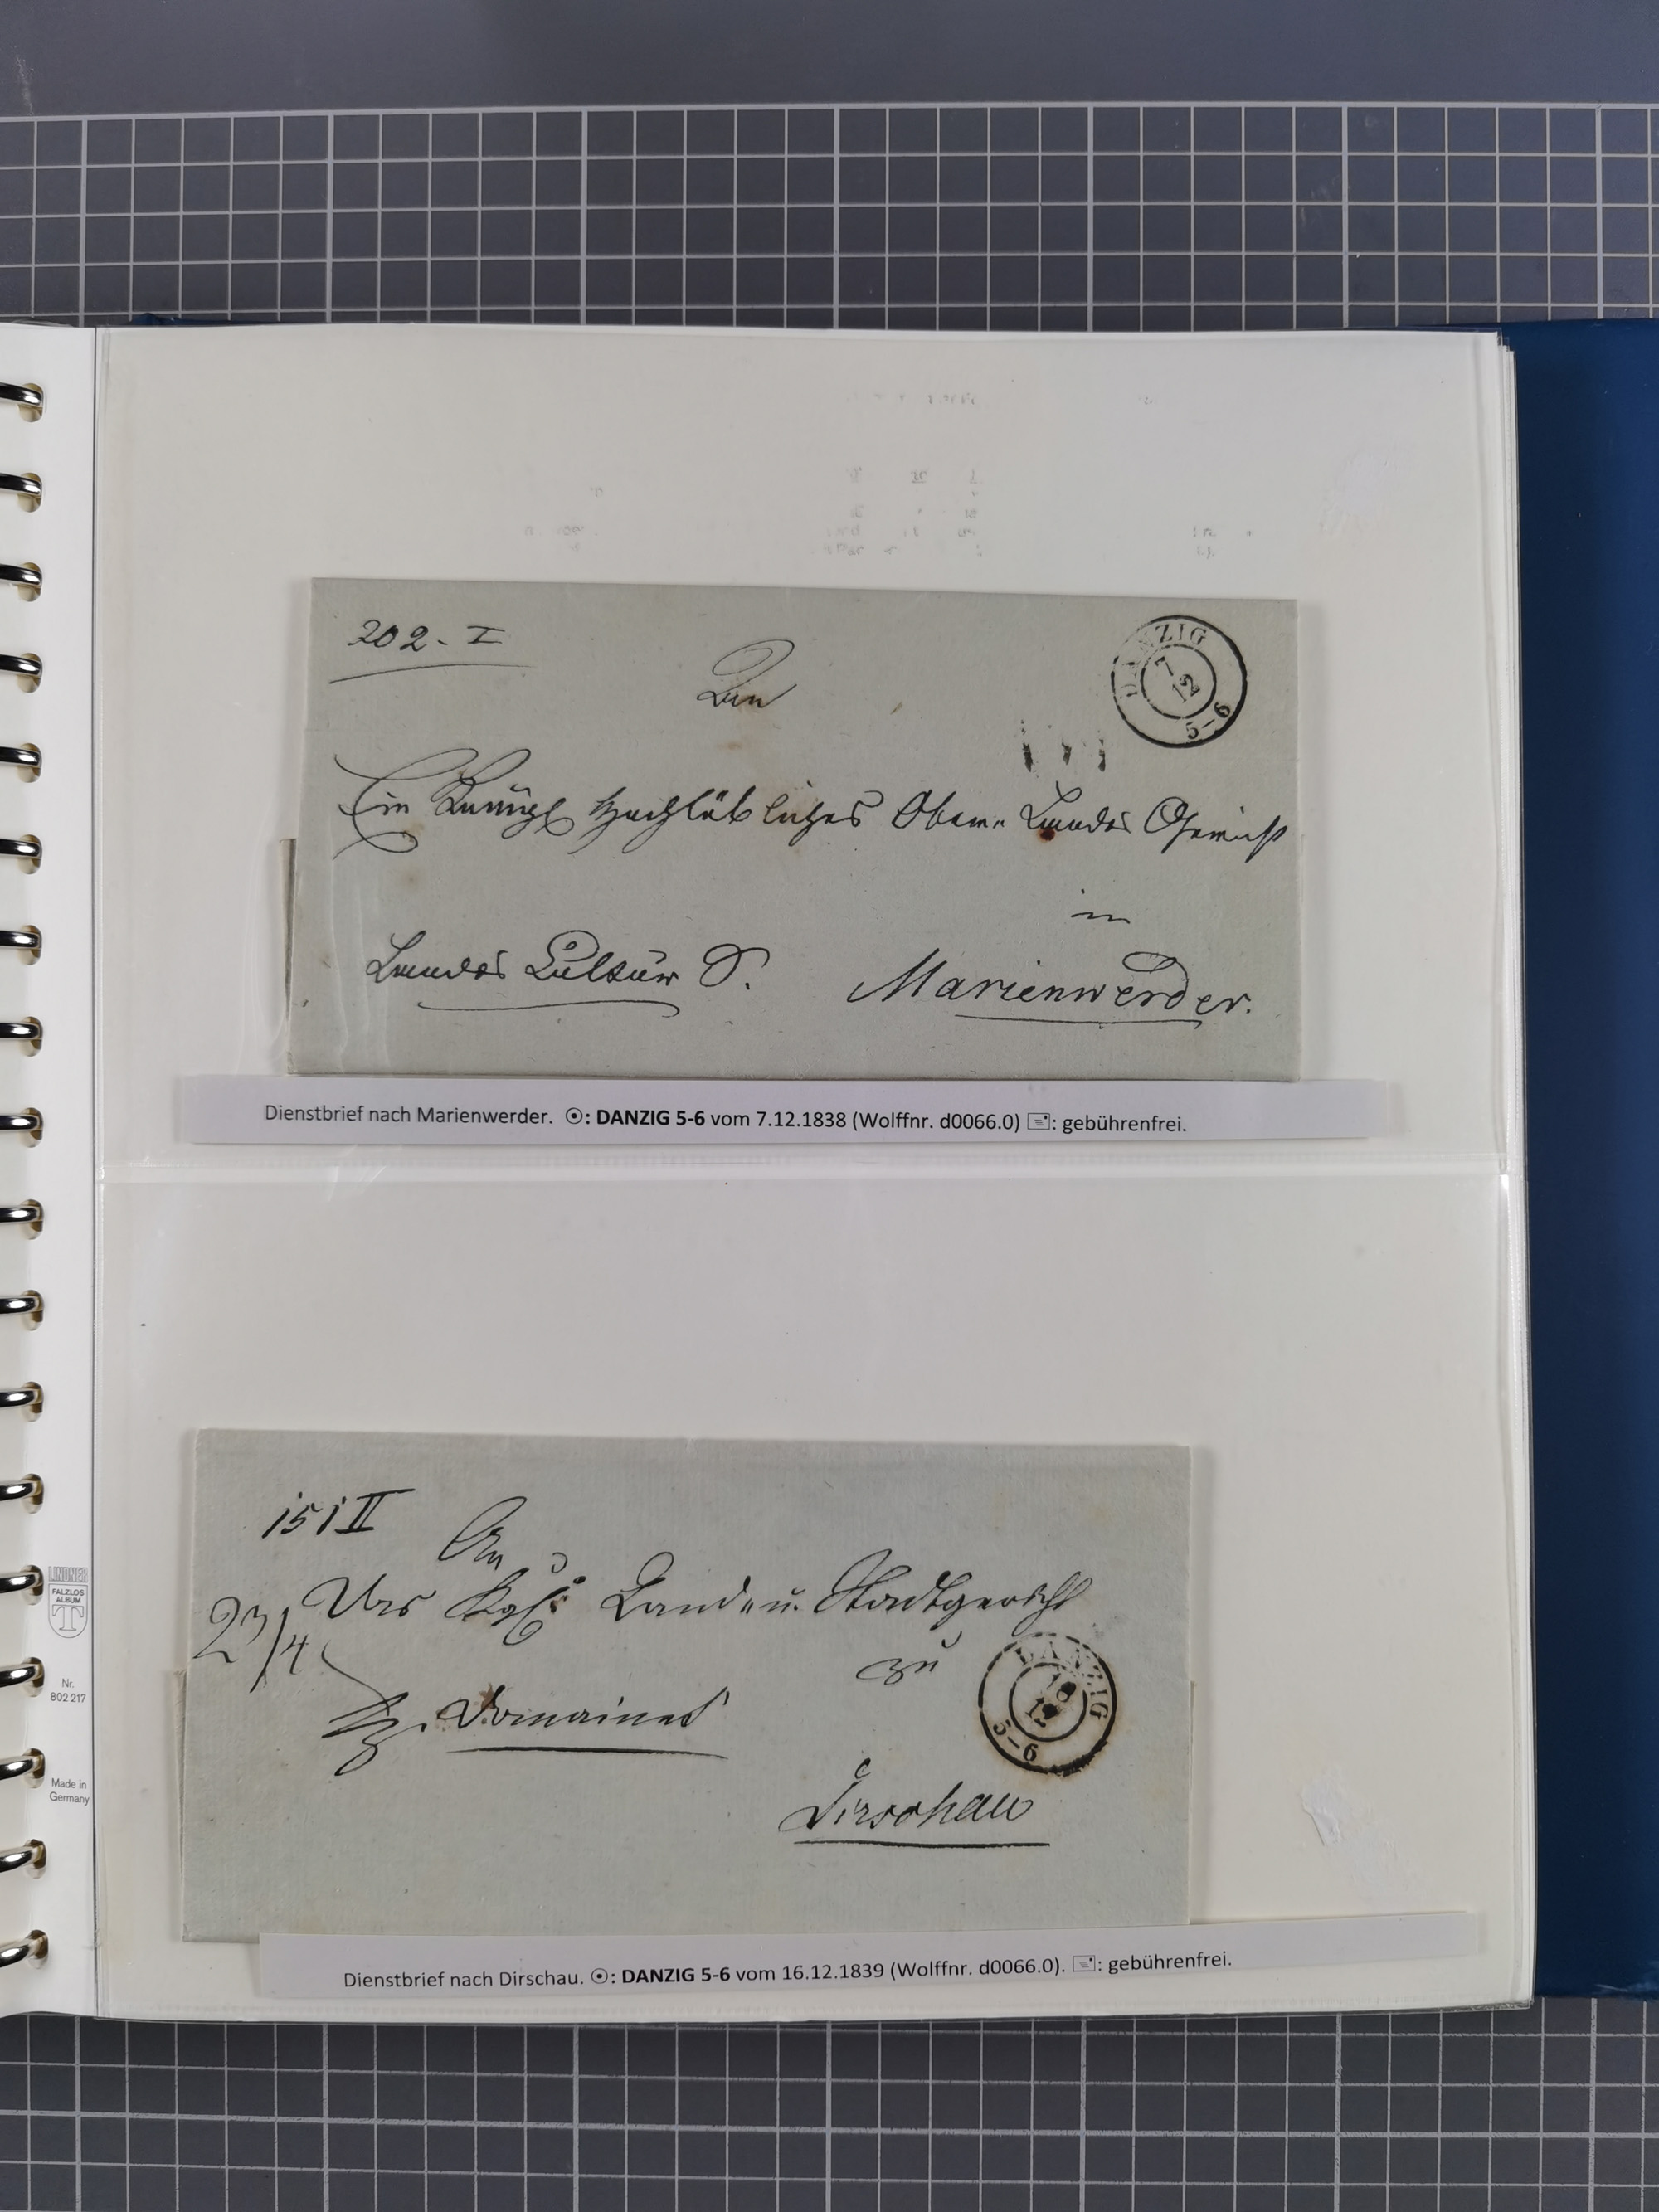 202 - I
DANZIG
7
12
5-6
An
Ein Königl Hochlöbliches Ober- Landes Gericht
in
Landes Cultur S.
Marienwerder.
Dienstbrief nach Marienwerder. ⦿: DANZIG 5-6 vom 7.12.1838 (Wolffnr. d0066.0) 🖃: gebührenfrei.
151 II
An
Das Kgl: Land- u. Stadtgericht
23/4
zu
DANZIG
12
5-6
Domainens
Dirschau
Dienstbrief nach Dirschau. ⦿: DANZIG 5-6 vom 16.12.1839 (Wolffnr. d0066.0). 🖃: gebührenfrei.
LINDNER
FALZLOS
ALBUM
T
Nr.
802 217
Made in
Germany